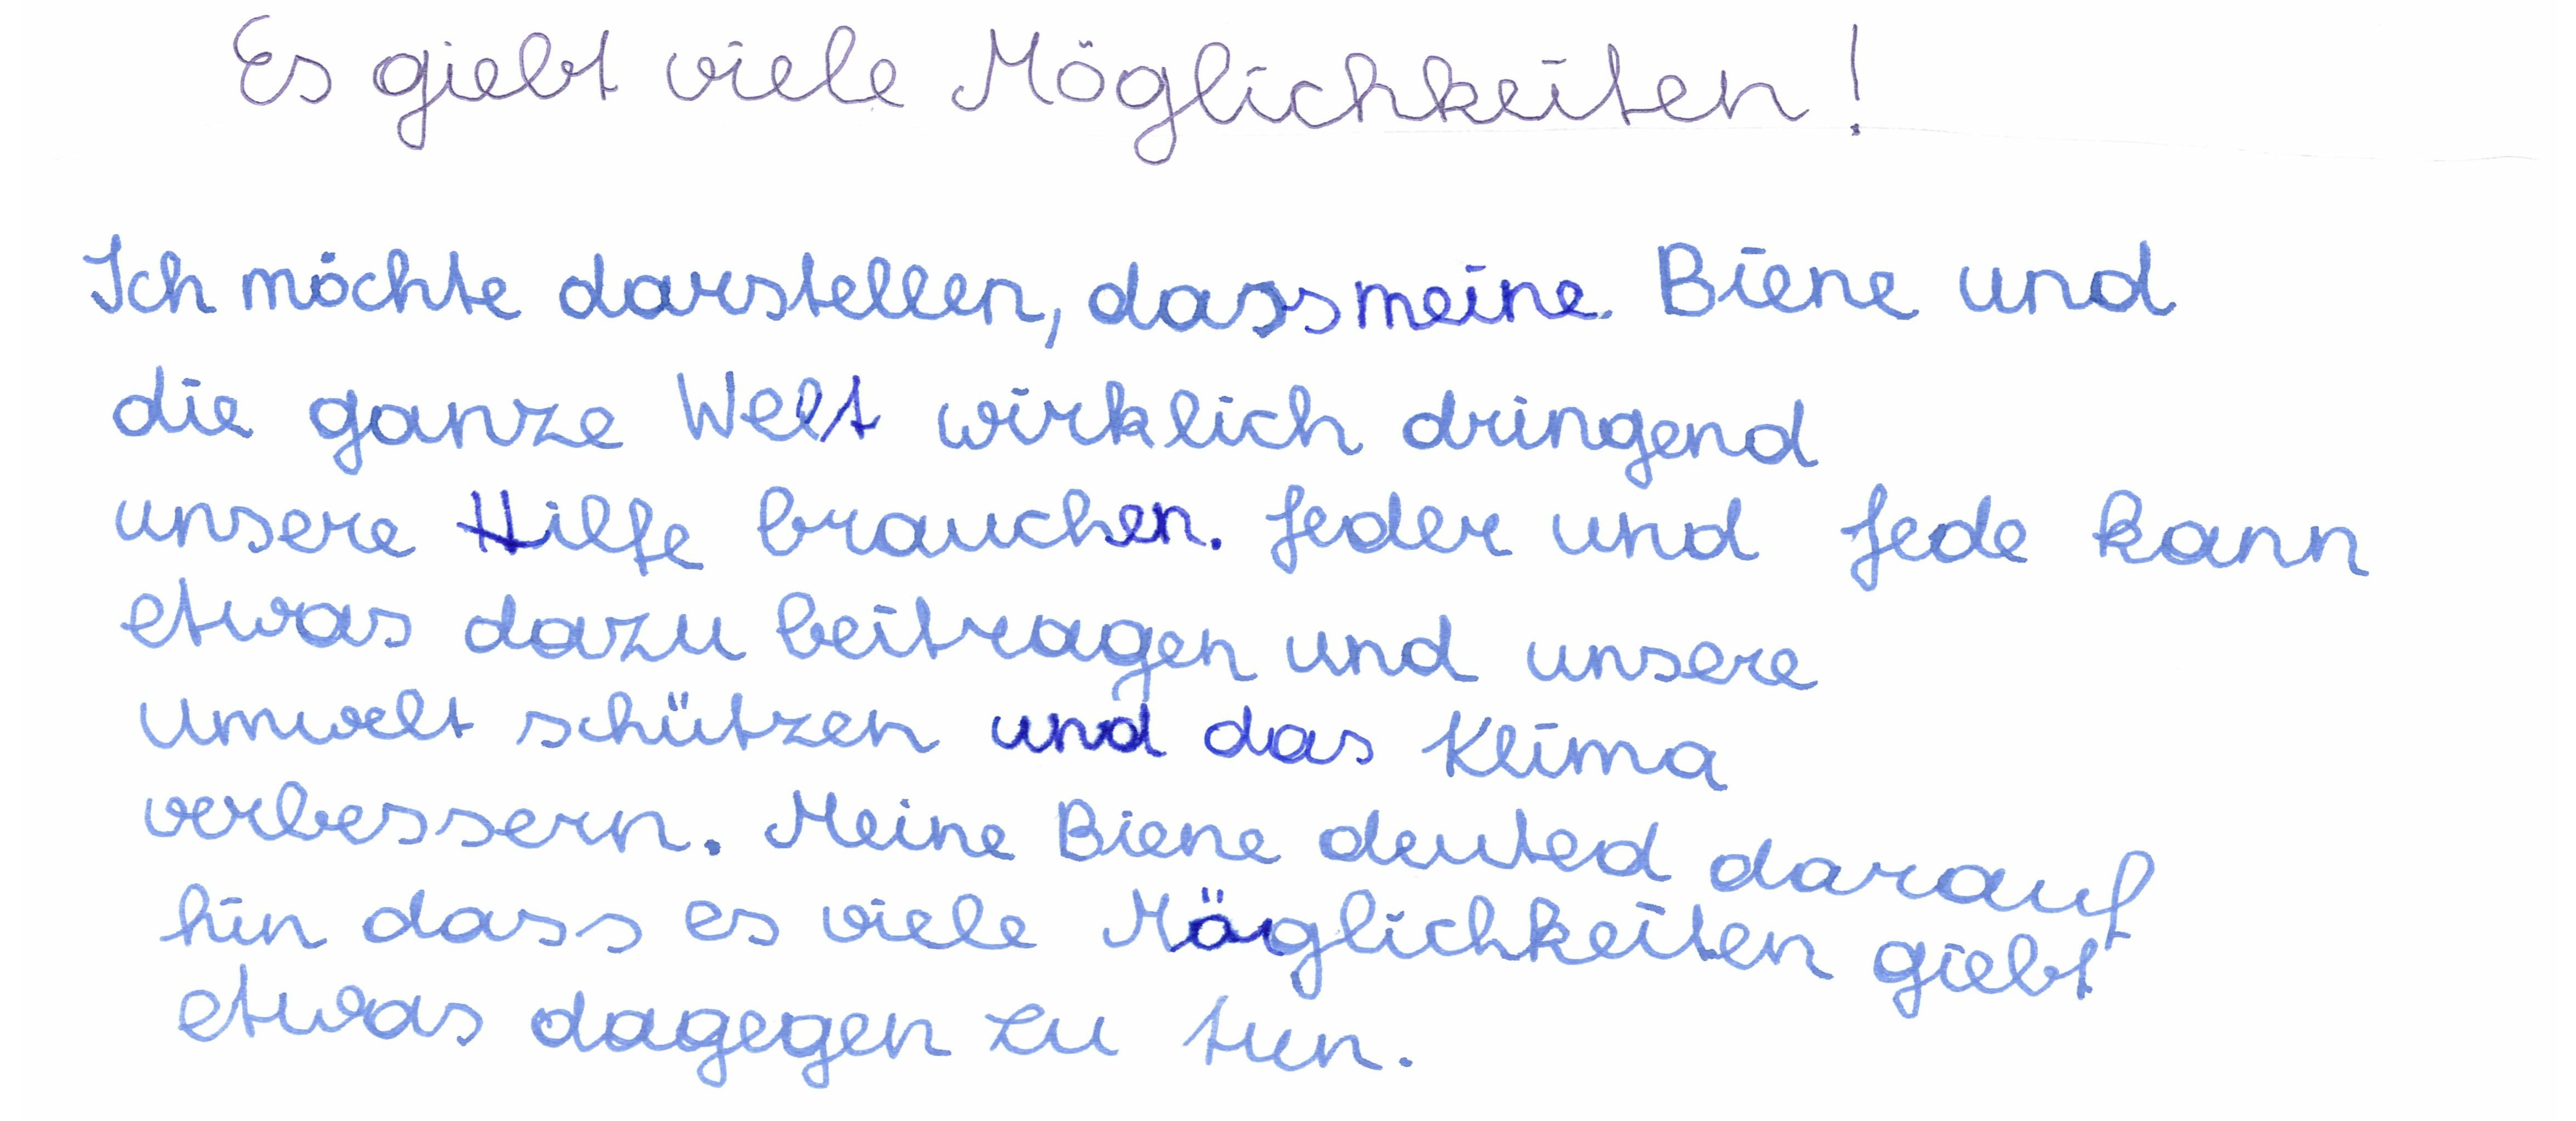 Es giebt viele Möglichkeiten!
Ich möchte darstellen, dass meine Biene und
die ganze Welt wirklich dringend
unsere Hilfe brauchen. Jeder und Jede kann
etwas dazu beitragen und unsere
Umwelt schützen und das Klima
verbessern. Meine Biene deuted darauf
hin dass es viele Möglichkeiten giebt
etwas dagegen zu tun.